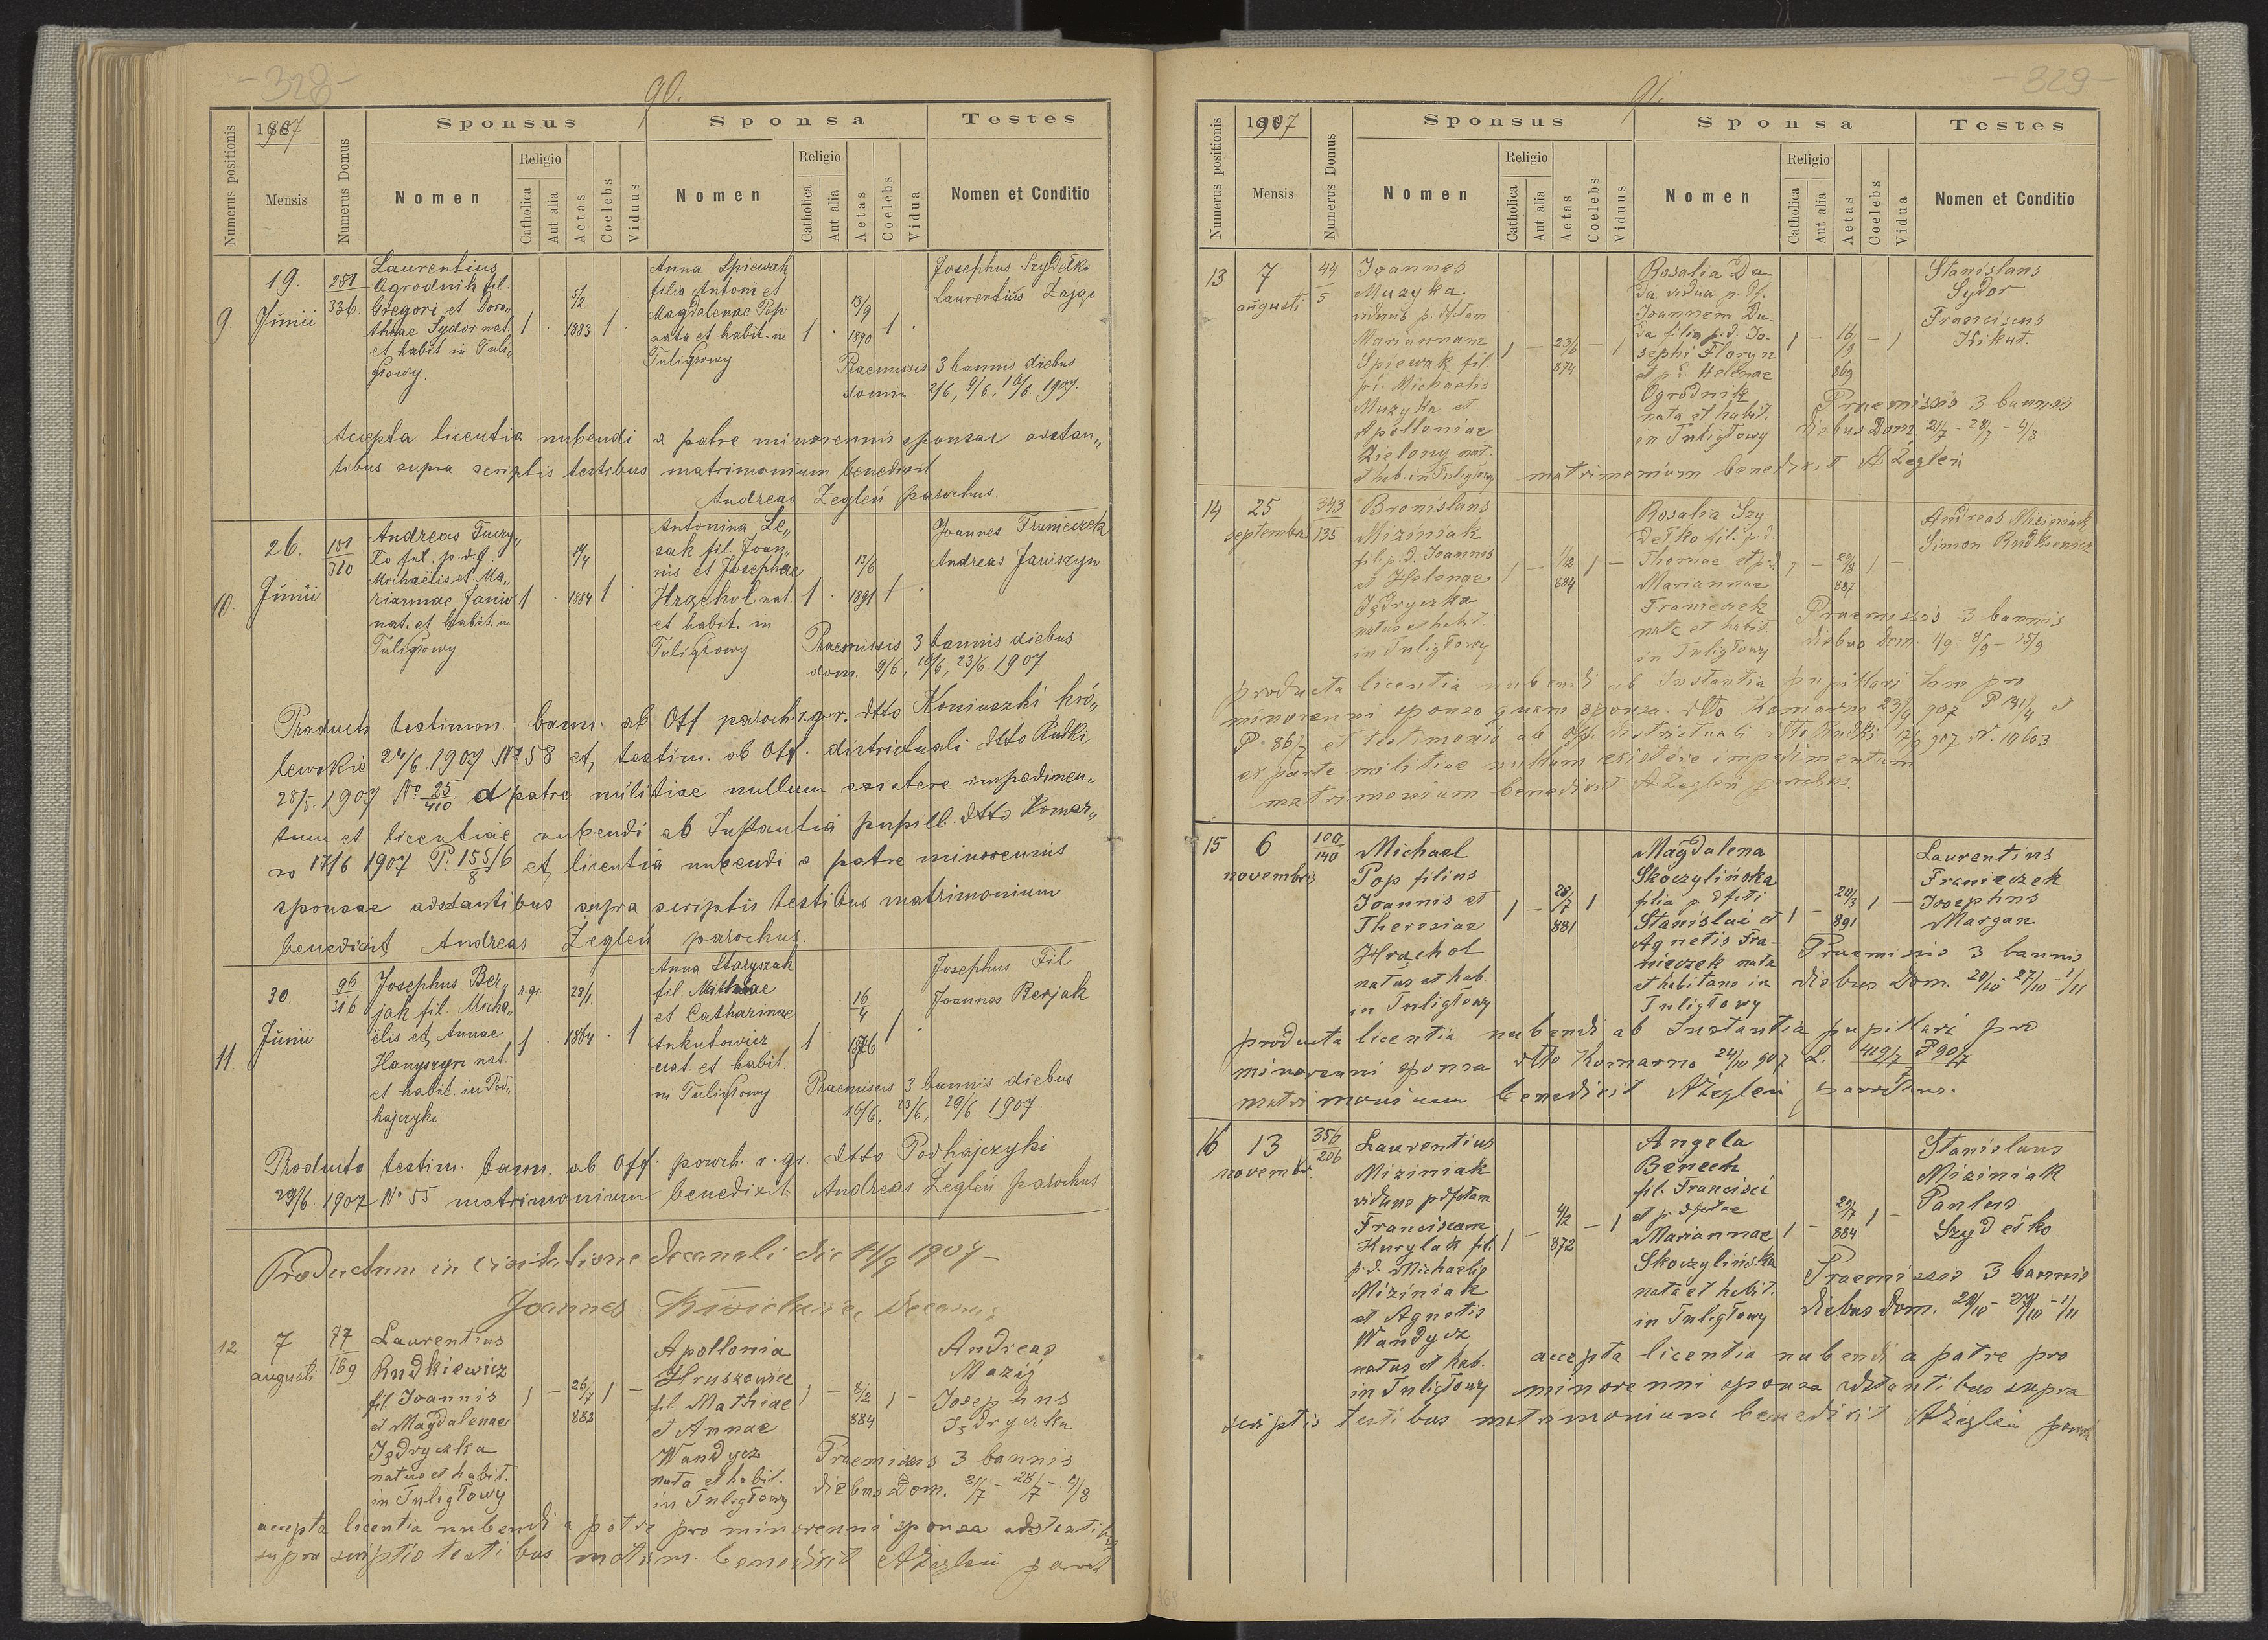 - 328 -
90.
Numerus positionis
1907
Mensis
Numerus Domus
Sponsus
Sponsa
Testes
Nomen
Religio
Catholica
Aut alia
Aetas
Coelebs
Viduus
Nomen
Religio
Catholica
Aut alia
Aetas
Coelebs
Vidua
Nomen et Conditio
9
19.
Junii
281
336.
Laurentius
Ogrodnik fil.
Gregori et Doro„
theae Sydor nat.
et habit in Tuli„
głowy.
1 . 5/2 1883 1 .
Anna Spiewak
filia Antoni et
Magdalenae Pop
nata et habit. in
Tuligłowy
1 . 13/9 1890 1 .
Josephus Szydełko
Laurentius
Praemissis 3 bannis diebus
domin 2/6, 9/6, 16/6 1907.
Acepta licentia nubendi a patre minorennis sponsae adstan„
tibus supra scriptis testibus matrimonium benedixit
Andreas Zegleń parochus.
10.
26.
Junii
181
320
Andreas
Michaëlis et Ma„
riannae
nat. et habit. in
Tuligłowy
1 . 1884 1
Antonina Le„
sak fil. Joan„
nis et Josephae
Hrachol nat.
et habit. in
Tuligłowy
1 . 13/6 1891 1 .
Joannes Franiczek
Andreas Jawiszyn
Praemissis 3 bannis diebus
dom. 9/6, 16/6, 23/6 1907
Producto testimon. bann. ab Off paroch.r.gr. dtto Koniuszki kró„
lewskie 24/6. 1907 No 58 et testim. ab Off. districtuali dtto Rudki
28/5. 1907 No 25/410 patre militiae nullum existere impedimen„
tum et licentiae nubendi ab Instantia pupill. dtto Komar„
no 17/6 1907 P. 155/8 /6 et licentia nubendi a patre minorennis
sponsae adstantibus supra scriptis testibus matrimonium
benedixit Andreas Zegleń parochus.
11
30.
Junii
96
316
Josephus Ber„
jak fil. Micha„
ëlis et Annae
Hanyszyn nat
et habit. in Pod„
hajczyki
r.gr. 1 . 28/1. 1864 . 1
Anna Staryszak
fil. Mathiae
et Catharinae
Ankutowicz
nat. et habit.
in Tuligłowy
1 16/4 1876 1
Josephus Fil
Joannes Berjak
Praemissis 3 bannis diebus
16/6, 23/6, 29/6 1907.
Producto testim. bann. ab Off. paroch. r. gr. dtto Podhajczyki
29/6. 1907 No 55 matrimonium benedixit Andreas Zegleń parochus
Productum in visitatione decanali die 11/9 1907 -
Joannes Decanus
12
7
augusti
77
169
Laurentius
Rudkiewicz
fil. Joannis
et Magdalenae
Jędryczka
natus et habit.
in Tuligłowy
1 - 26/7 882 1 -
Apollonia
Hruszowiec
fil. Mathiae
et Annae
Wandycz
nata et habit.
in Tuligłowy
1 - 8/2 884 1 -
Andreas
Mazij
Josephus
Jędryczka
Praemissis 3 bannis
diebus Dom. 21/7 - 28/7 - 4/8
accepta licentia nubendi a patre pro minorenni sponsa adstantibus
supra scriptis testibus matrim. benedixit AŻegleń paroch
- 329 -
91.
Numerus positionis
1907
Mensis
Numerus Domus
Sponsus
Sponsa
Testes
Nomen
Religio
Catholica
Aut alia
Aetas
Coelebs
Viduus
Nomen
Religio
Catholica
Aut alia
Aetas
Coelebs
Vidua
Nomen et Conditio
13
7
augusti
44
5
Joannes
Muzyka
viduus p. dftam
Mariannam
Spiewak fil.
p.d. Michaelis
Muzyka et
Apolloniae
Zielony nat.
et hab. in Tuligłowy
1 - 23/6 874 - 1
Rosalia Du-
da vidua p. df.
Joannem Du-
da filia p.d. Jo-
sephi Floryn
et p.d. Helenae
Ogrodnik
nata et habit.
in Tuligłowy
1 - 16/9 869 - 1
Stanislaus
Sydor
Franciscus
Kikut.
Praemissis 3 bannis
diebus Dom 21/7 - 28/7 - 4/8
matrimonium benedixit A Zegleń
14
25
septembris
343
135
Bronislaus
Miziniak
fil. p.d. Joannes
et Helenae
Jędryczka
natus et habit.
in Tuligłowy
1 - 1/12 884 1 -
Rosalia Szy-
dełko fil. p.d.
Thomae et p.d.
Mariannae
Franieczek
nata et habit.
in Tuligłowy
1 - 887 1 -
Andreas Miziniak
Simon Rudkiewicz
Praemissis 3 bannis
diebus Dom. 1/9 - 8/9 - 15/9
producta licentia nubendi ab Instantia pupillari tam pro
minorenni sponso quam sponsa dtto Komarno 23/9 907 P 191/4 et
P. 86/7 et testimonio ab Off. districtuali dtto Rudki 17/9 907 N. 19603
ex parte militiae nullum existere impedimentum
matrimonium benedixit AŻegleń parochus.
15
6
novembris
100
140
Michael
Pop filius
Joannis et
Theresiae
Hrachol
natus et hab.
in Tuligłowy
1 - 28/7 881 1
Magdalena
Skoczylińska
filia p dfcti
Stanislai et
Agnetis Fra-
nieczek nata
et habitans in
Tuligłowy
1 - 20/3 891 1 -
Laurentius
Franieczek
Josephus
Margan
Praemissis 3 bannis
diebus Dom. 20/10 - 27/10 - 1/11
producta licentia nubendi ab Instantia pupillari pro
minorenni sponsa dtto Komarno 24/10 907 L. 419/7 P 90/7
matrimonium benedixit AŻegleń parochus.
16
13
novembr.
356
206
Laurentius
Miziniak
viduus p dfctam
Franciscam
Kurylak fil.
p.d. Michaelis
Miziniak
et Agnetis
Wandycz
natus et hab.
in Tuligłowy
1 - 4/2 872 - 1
Angela
Benech
fil. Francisci
et p. dfctae
Mariannae
Skoczylińska
nata et habit.
in Tuligłowy
1 - 29/7 884 1 -
Stanislaus
Miziniak
Paulus
Szydełko
Praemissis 3 bannis
diebus Dom. 20/10 - 27/10 - 1/11
accepta licentia nubendi a patre pro
minorenni sponsa adstantibus supra
scriptis testibus matrimonium benedixit AŻegleń paroch